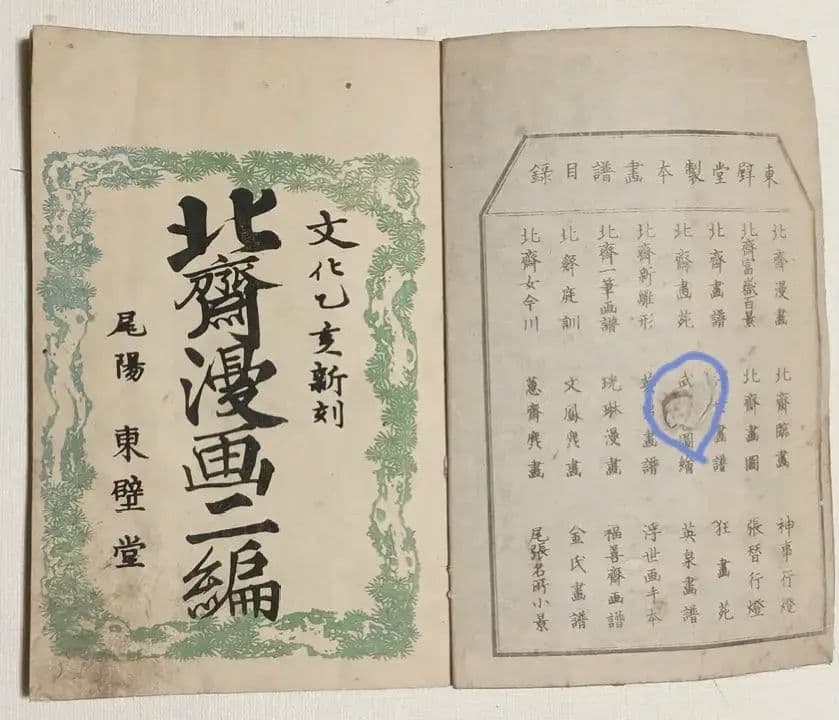 東壁堂製本畫譜目録
北齋漫畫 北齋臨畫 神事行燈
北齋富嶽百景 北齋畫圖 張替行燈
北齋畫譜 畫譜 狂畫苑
北齋畫苑 武 圖繪 英泉畫譜
北齋新雛形 畫譜 浮世画手本
北齋一筆画譜 珖琳漫畫 福善齋画譜
北齋庭訓 文鳳麁畫 金氏畫譜
北齋女今川 蕙齋麁畫 尾張名所小景
文化乙亥新刻
北齋漫画二編
尾陽 東壁堂